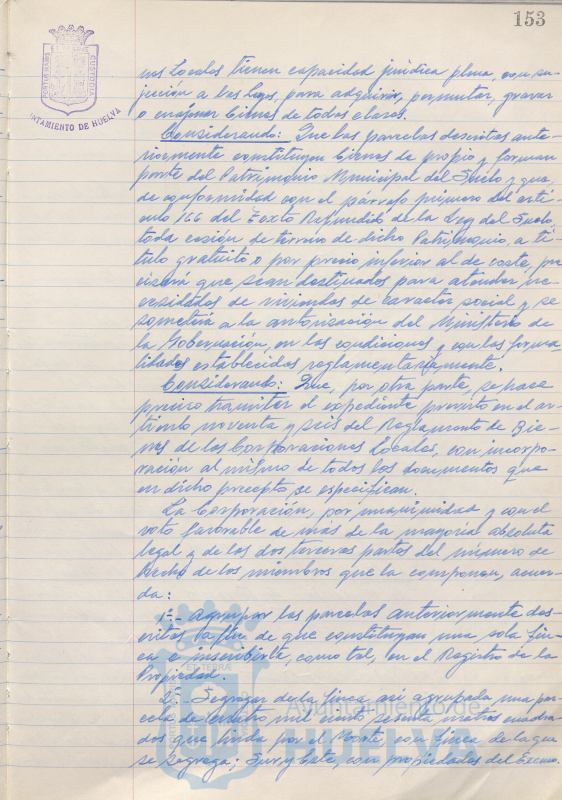 153
PORTUS MARIS
CUSTODIA
AYUNTAMIENTO DE HUELVA
nes Locales tienen capacidad jurídica plena, con su-
jección a las leyes, para adquirir, permutar, gravar
o enajenar bienes de todas clases.
Considerando: Que las parcelas descritas ante-
riormente constituyen bienes de propio y forman
parte del Patrimonio Municipal del Suelo y que,
de conformidad con el párrafo primero del artí-
culo 166 del Texto Refundido de la Ley del Suelo
toda cesión de terreno de dicho Patrimonio, a tí-
tulo gratuito o por precio inferior al de coste, pre
cisará que sean destinados para atender ne-
cesidades de viviendas de carácter social y se
someterá a la autorización del Ministerio de
la Gobernación, en las condiciones y con las forma-
lidades establecidas reglamentariamente.
Considerando: Que, por otra parte, se hace
preciso tramitar el expediente previsto en el ar-
tículo noventa y seis del Reglamento de Bie-
nes de las Corporaciones Locales, con incorpo-
ración al mismo de todos los documentos que
en dicho precepto se especifican.
La Corporación, por unanimidad y con el
voto favorable de más de la mayoría absoluta
legal y de las dos terceras partes del número de
hecho de los miembros que la componen, acuer-
da:
1º.- Agrupar las parcelas anteriormente des-
critas a fin de que constituyan una sola fin-
ca e inscribirla, como tal, en el Registro de la
Propiedad.
2º.- Segregar de la finca así agrupada una par-
cela de cuatro mil ciento sesenta metros cuadra-
dos que linda por el Norte, con finca de la que
se segrega; Sur y Este, con propiedades del Excmo.
Ayuntamiento de
HUELVA